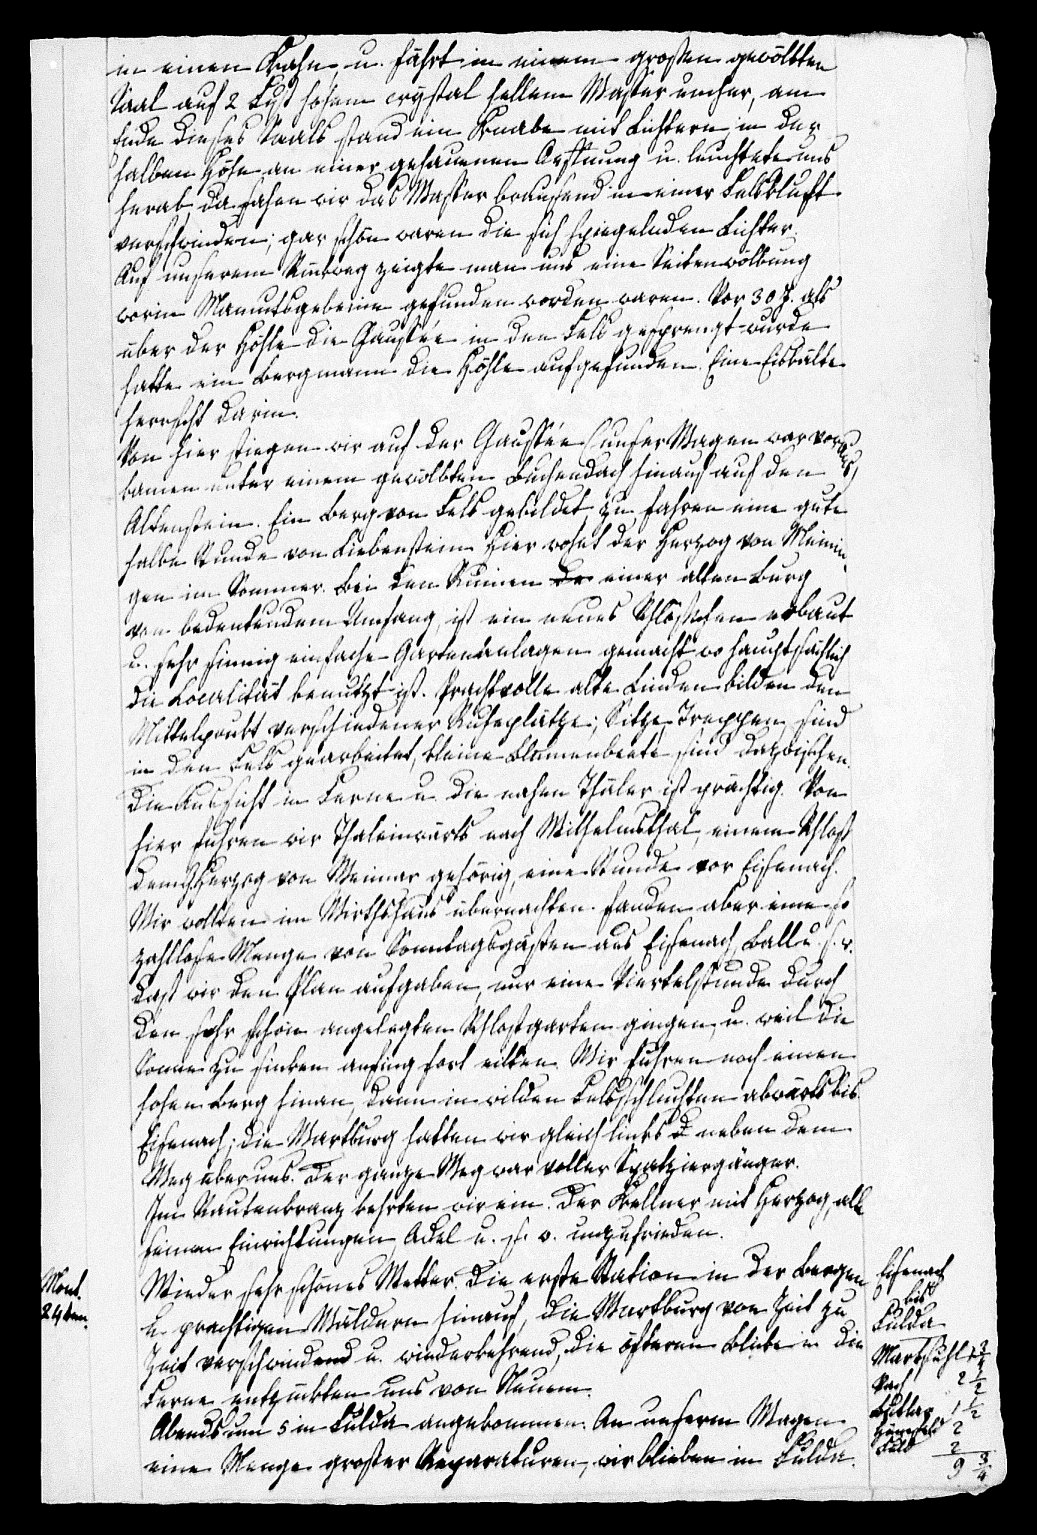 in einen Kahn, u. fährt in einem großen gewölbten
Saal auf 2 Fuß hohem crystal hellem Wasser umher, am
Ende dieses Saals stand ein Knabe mit Lichtern in der
halben Höhe an einer gehauenen Oeffnung u. leuchtete uns
herab, da sahen wir das Wasser brausend in einer Felskluft
verschwinden; gar schön waren die sich spiegelnden Lichter.
Auf unserem Rückweg zeigte man uns eine Seitenwölbung
worin Mamutsgebeine gefunden worden waren. Vor 30 J. als
über der Höhle die Gaussée in den Fels gesprengt wurde
hatte ein Bergmann die Höhle aufgefunden. Eine Eiskälte
herrscht darin.
Von hier stiegen wir auf der Gaussée (unser Wagen war voraus)
kamen unter einem gewölbten Buchendach hinauf auf den
Altenstein. Ein Berg von Fels gebildet zu fahren eine gute
halbe Stunde von Liebenstein. Hier wohnt der Herzog von Meinin-
gen im Sommer. Bei den Ruinen de einer alten Burg
von bedeutendem Umfang, ist ein neues Schlößchen erbaut
u. sehr sinnig einfache Gartenanlagen gemacht wo hauptsächlich
die Localität benutzt ist. Prachtvolle alte Linden bilden den
Mittelpunkt verschiedener Ruheplätze; Sitze, Treppen sind
in den Fels gearbeitet, kleine Blumenbeete sind dazwischen.
Die Aussicht in Ferne u. die nahen Thäler ist prächtig. Von
hier fuhren wir Thaleinwärts nach Wilhelmsthal, einem Schloß
dem Herzog von Weimar gehörig, eine Stunde vor Eisenach.
Wir wollten im Wirthshaus übernachten. fanden aber eine so
zahllose Menge von Sonntagsgästen aus Eisenach, Ball u. s. w.
daß wir den Plan aufgaben, nur eine Viertelstunde durch
den sehr schön angelegten Schloßgarten gingen, u. weil die
Sonne zu sinken anfing fort eilten. Wir fuhren noch einen
hohen Berg hinan, dann in wilden Felsschluchten abwärts bis
Eisenach; die Wartburg hatten wir gleich links d neben dem
Weg über uns. Der ganze Weg war voller Spatziergänger.
Im Rautenkranz kehrten wir ein. Der Kellner mit Herzog, alle
seinen Einrichtungen, Adel u. s. w. unzufrieden.
Mont.
24ten.
Wieder sehr schönes Wetter. Die erste Station in der Bergen
u. prächtigen Wäldern hinauf, die Wartburg von Zeit zu
Zeit verschwindend u. wiederkehrend, die öfteren Blicke in die
Ferne entzückten uns von Neuem.
Abends um 5 in Fulda angekommen. An unserm Wagen
eine Menge großer Reparaturen, wir blieben in Fulda.
Eisenach
bis
Fulda
Marksuhl 1 3/4
Vach 2 1/2
Buttlar 1 1/2
Hünefeld 2
Fuld 2
9 3/4